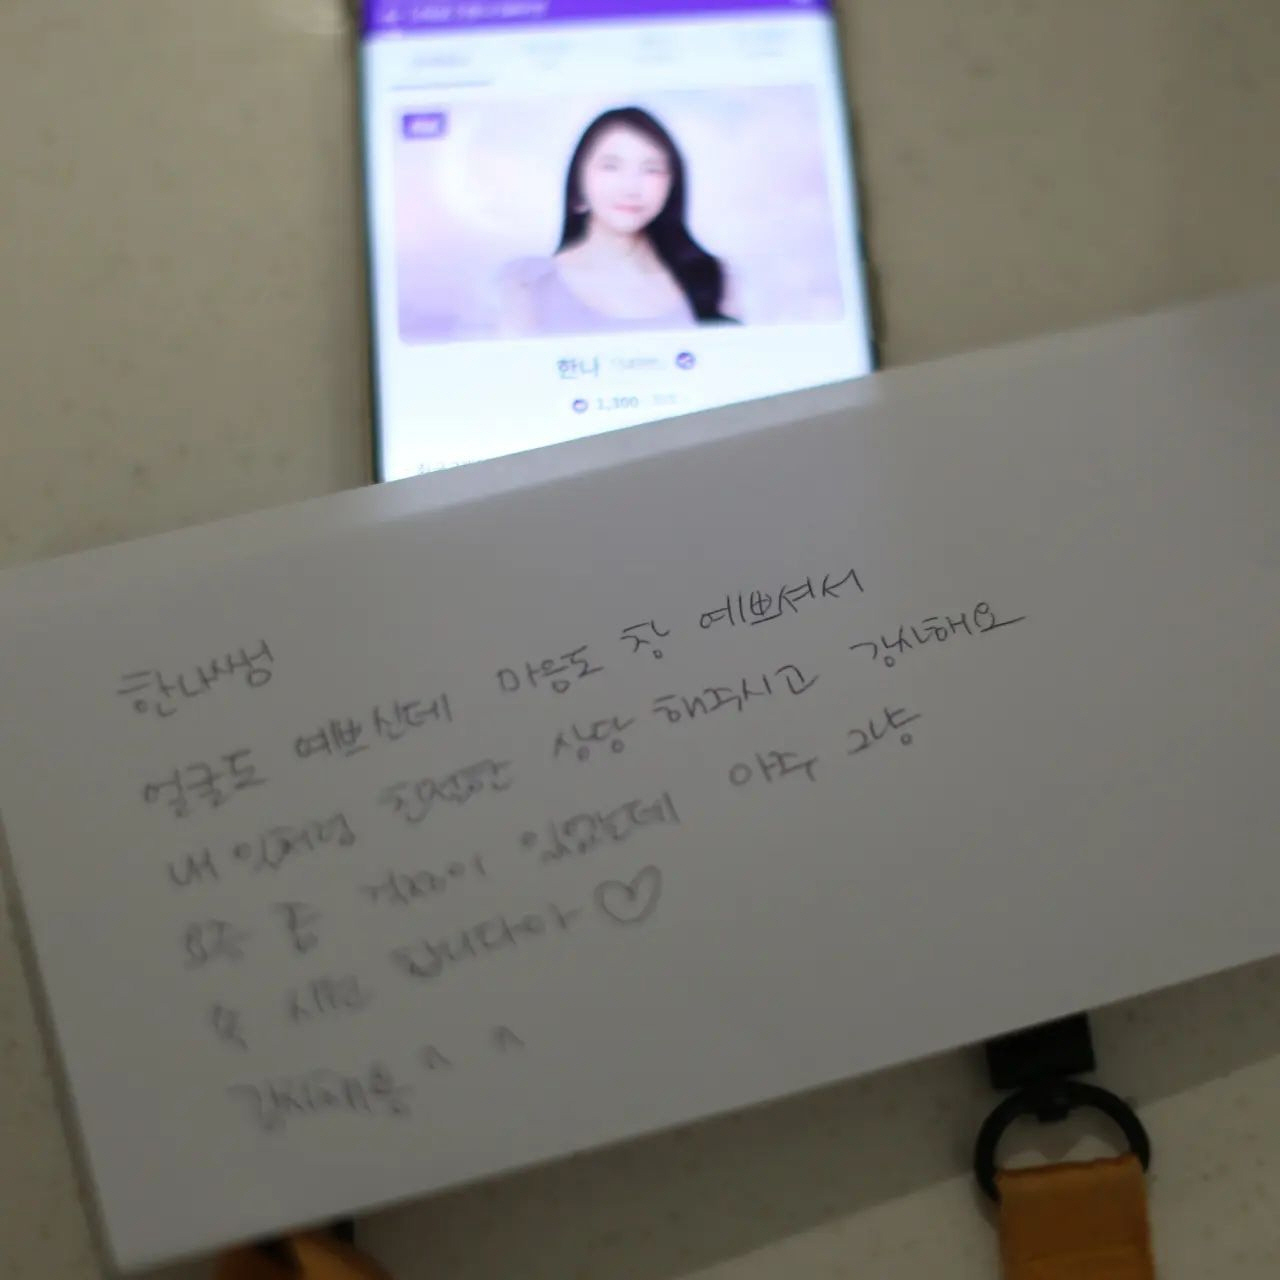 한나
1,300
한나쌤
얼굴도 예쁘신데 마음도 참 예쁘셔서
내 일처럼 친절한 상담 해주시고 감사해요
요즘 좀 걱정이 있었는데 아주 그냥
속 시원 합니다아♡
감사해용 ^ ^